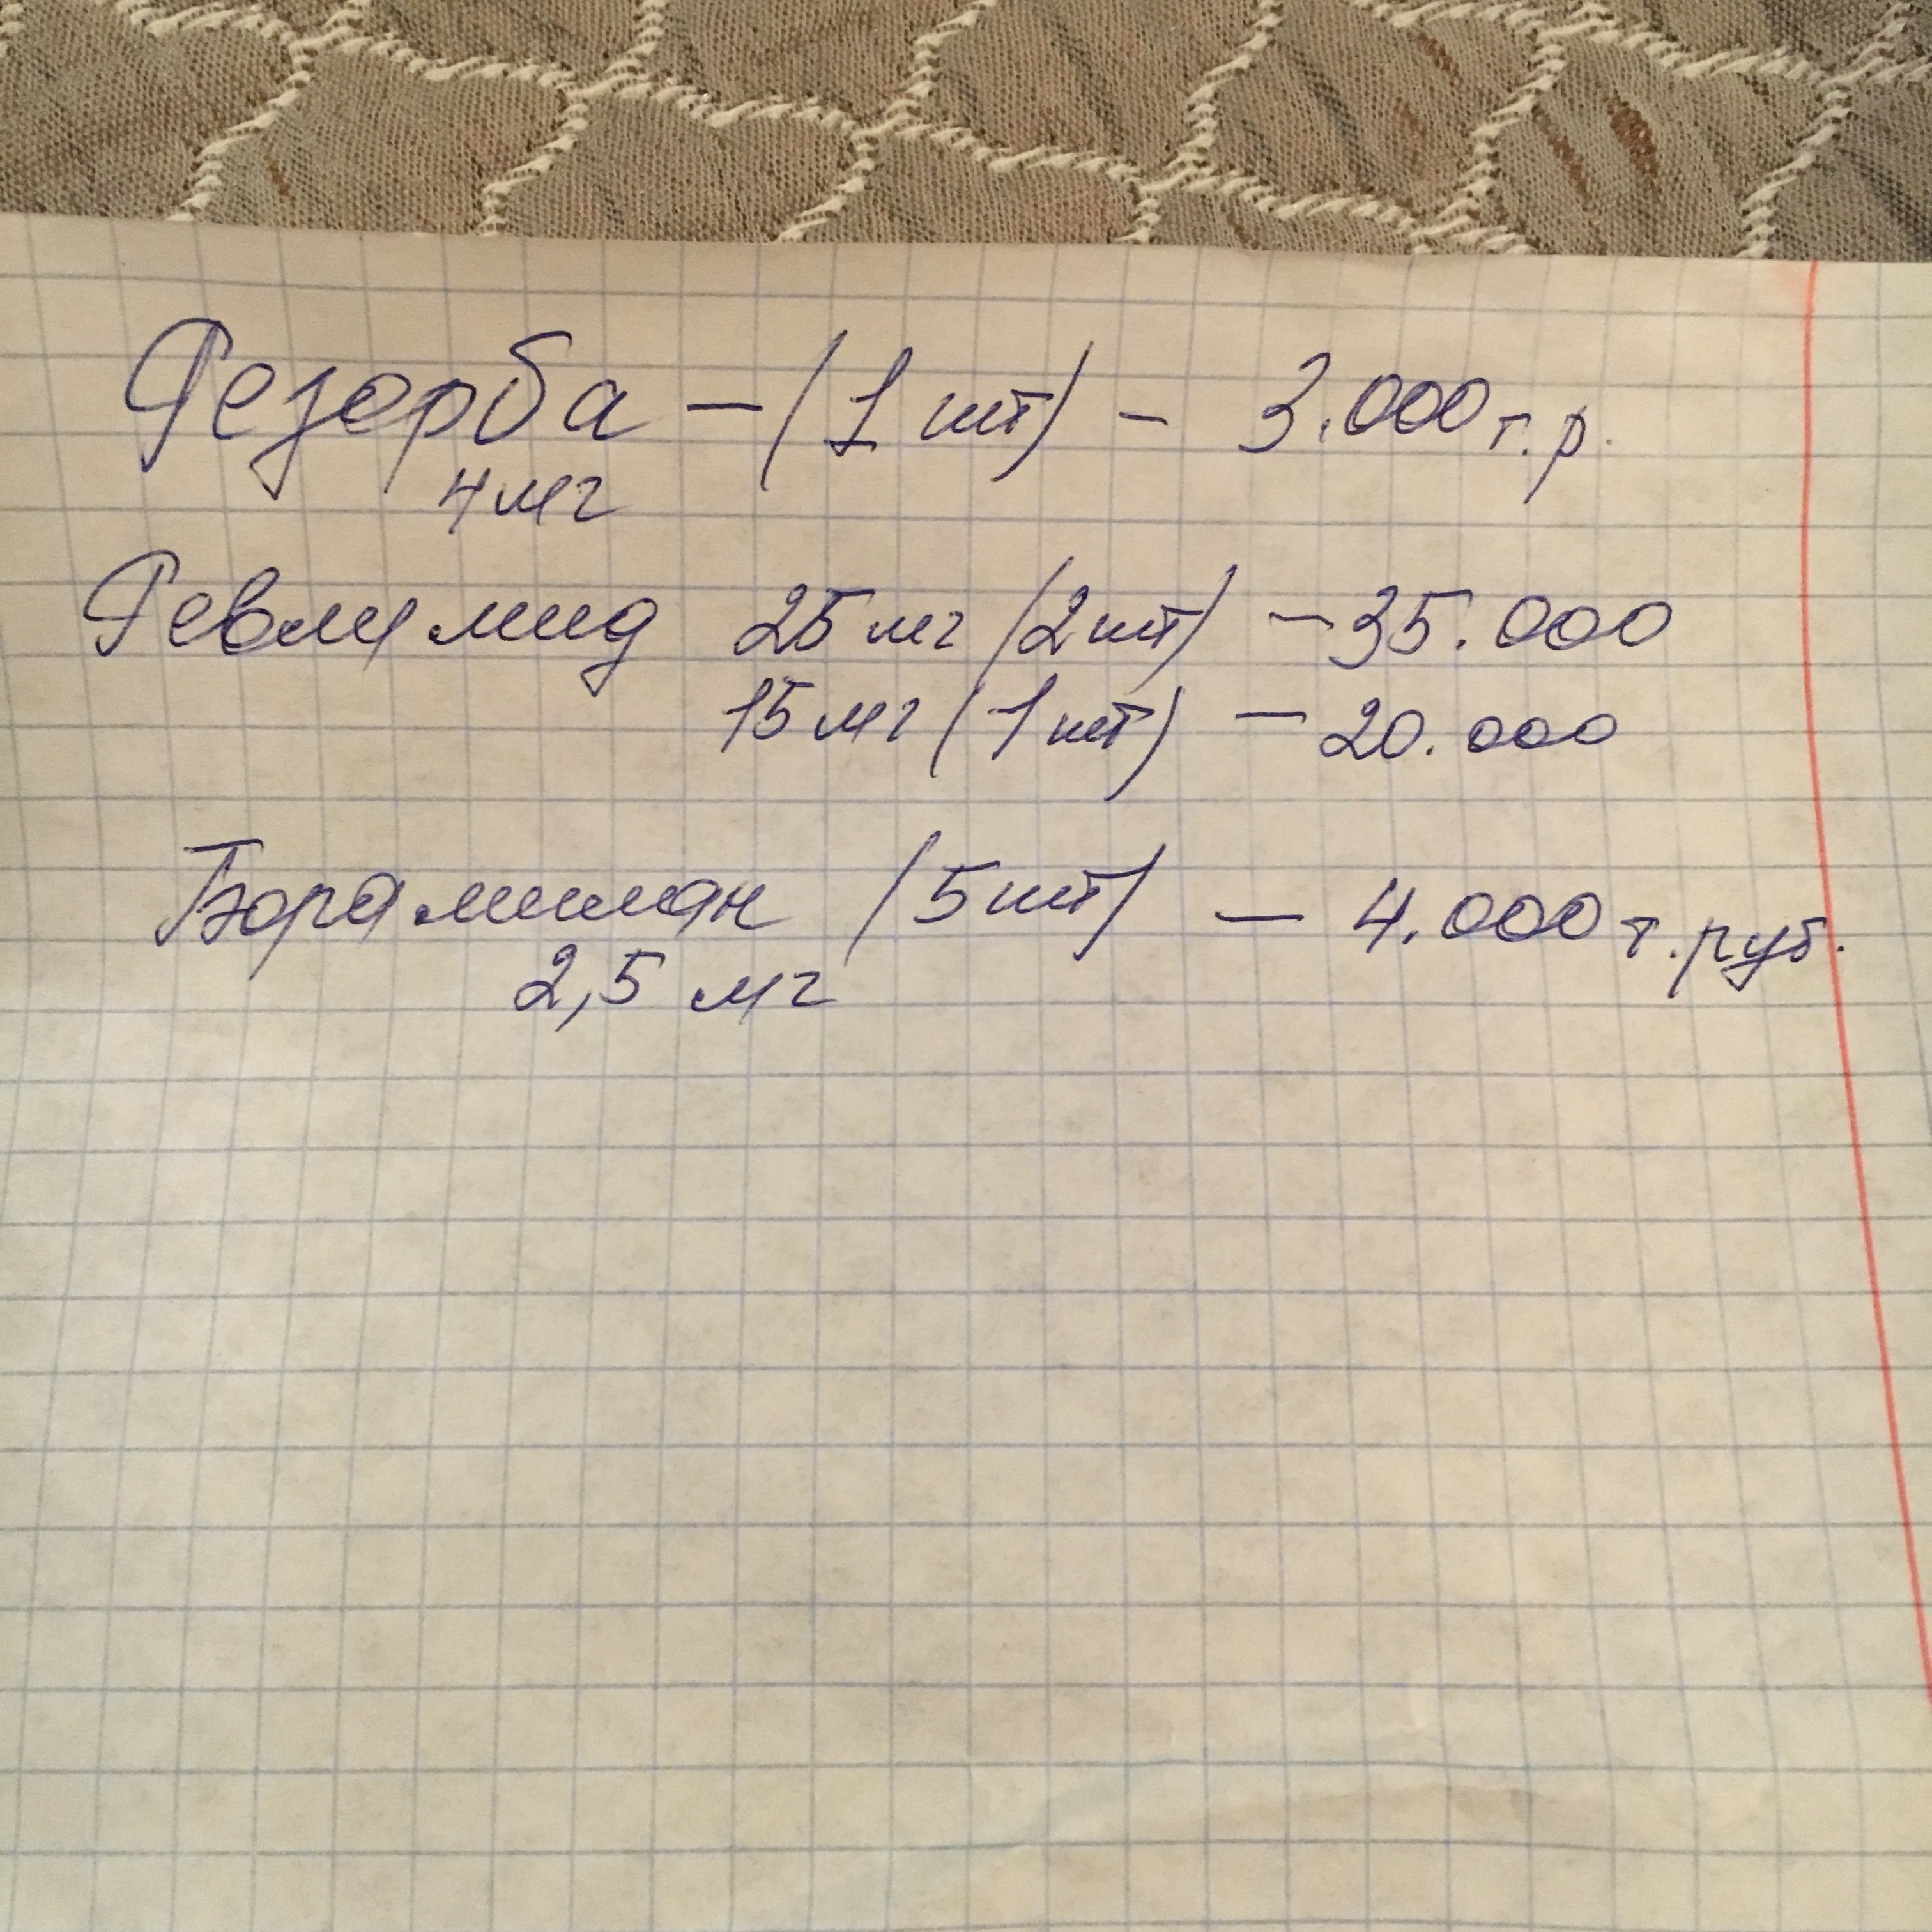 Резорба - (1 шт) - 3.000 т.р.
4 мг
Ревлимид 25 мг (2 шт) - 35.000
15 мг (1 шт) - 20.000
Борамилан (5 шт) - 4.000 т.руб.
2,5 мг